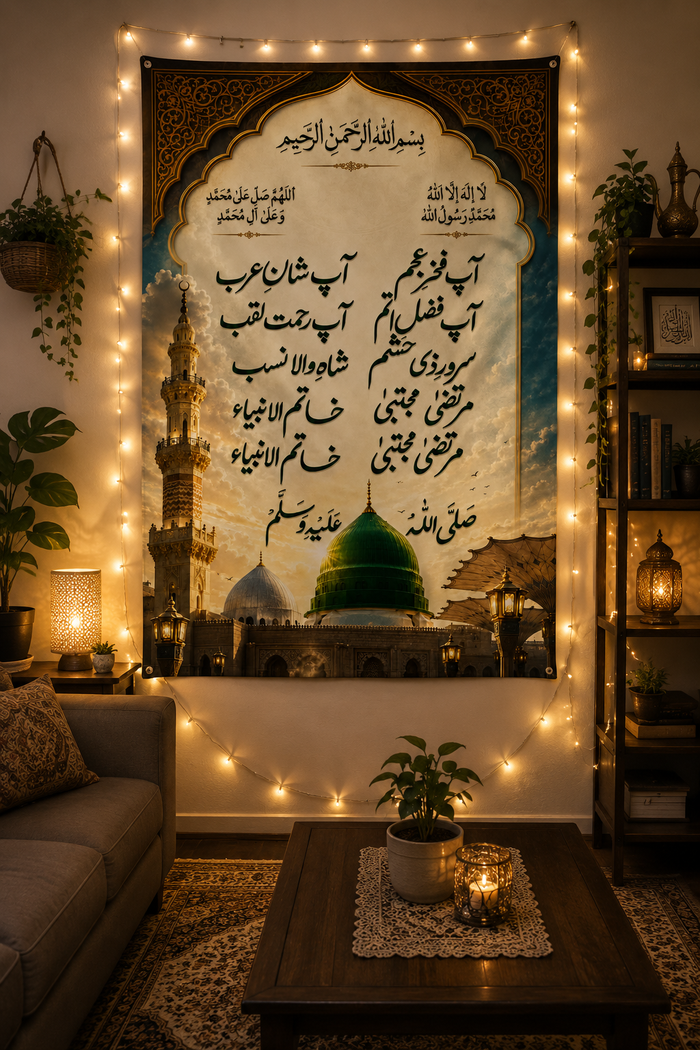 بِسْمِ اللهِ الرَّحْمٰنِ الرَّحِيْمِ
لَا إِلٰهَ إِلَّا اللهُ
مُحَمَّدٌ رَسُولُ الله
اَللّٰهُمَّ صَلِّ عَلٰى مُحَمَّدٍ
وَّعَلٰى آلِ مُحَمَّدٍ
آپ فخرِ عجم آپ شانِ عرب
آپ فضلِ اتم آپ رحمت لقب
سرورِ ذی حشم شاہِ والا نسب
مرتضیٰ مجتبیٰ خاتم الانبیاء
مرتضیٰ مجتبیٰ خاتم الانبیاء
صَلَّی اللہُ عَلَیْہِ وَسَلَّمْ